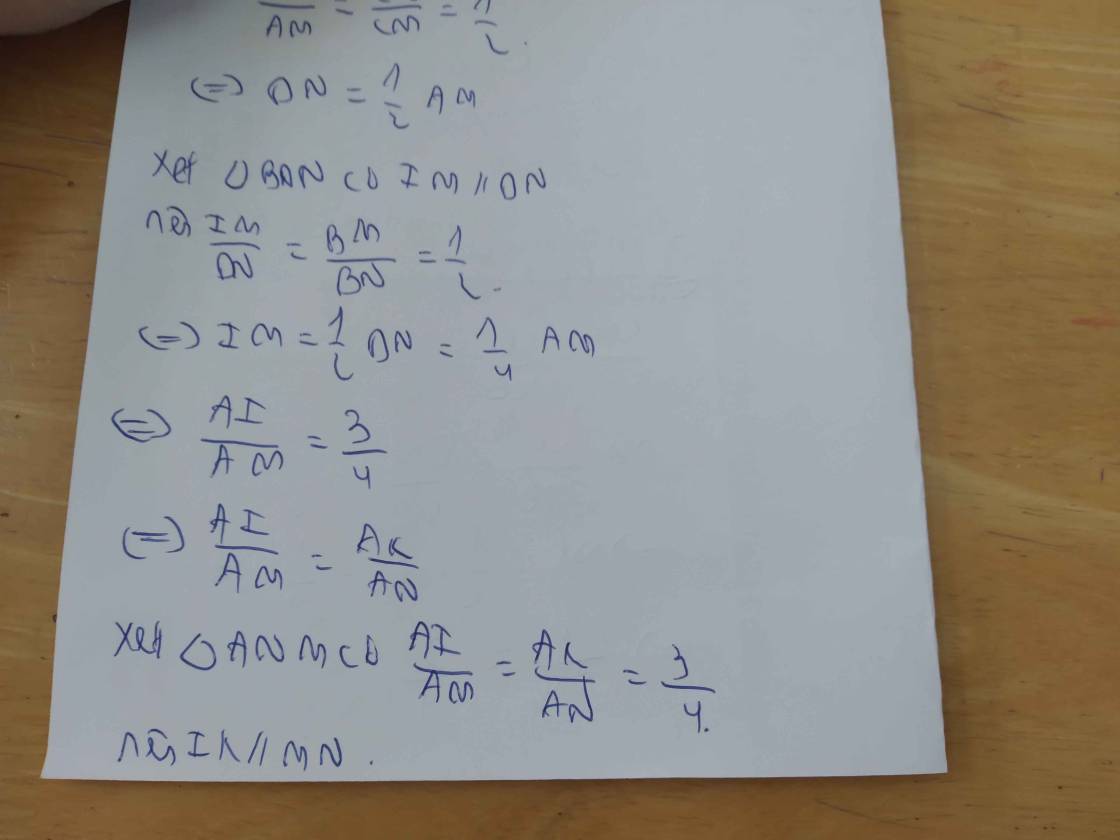 /AM = /CM = 1/2.
<=> DN = 1/2 AM
Xét △BDN có IM // DN
nên IM/DN = BM/BN = 1/2.
<=> IM = 1/2 DN = 1/4 AM
<=> AI/AM = 3/4
<=> AI/AM = AK/AN
Xét △ANM có AI/AM = AK/AN = 3/4.
nên IK // MN.